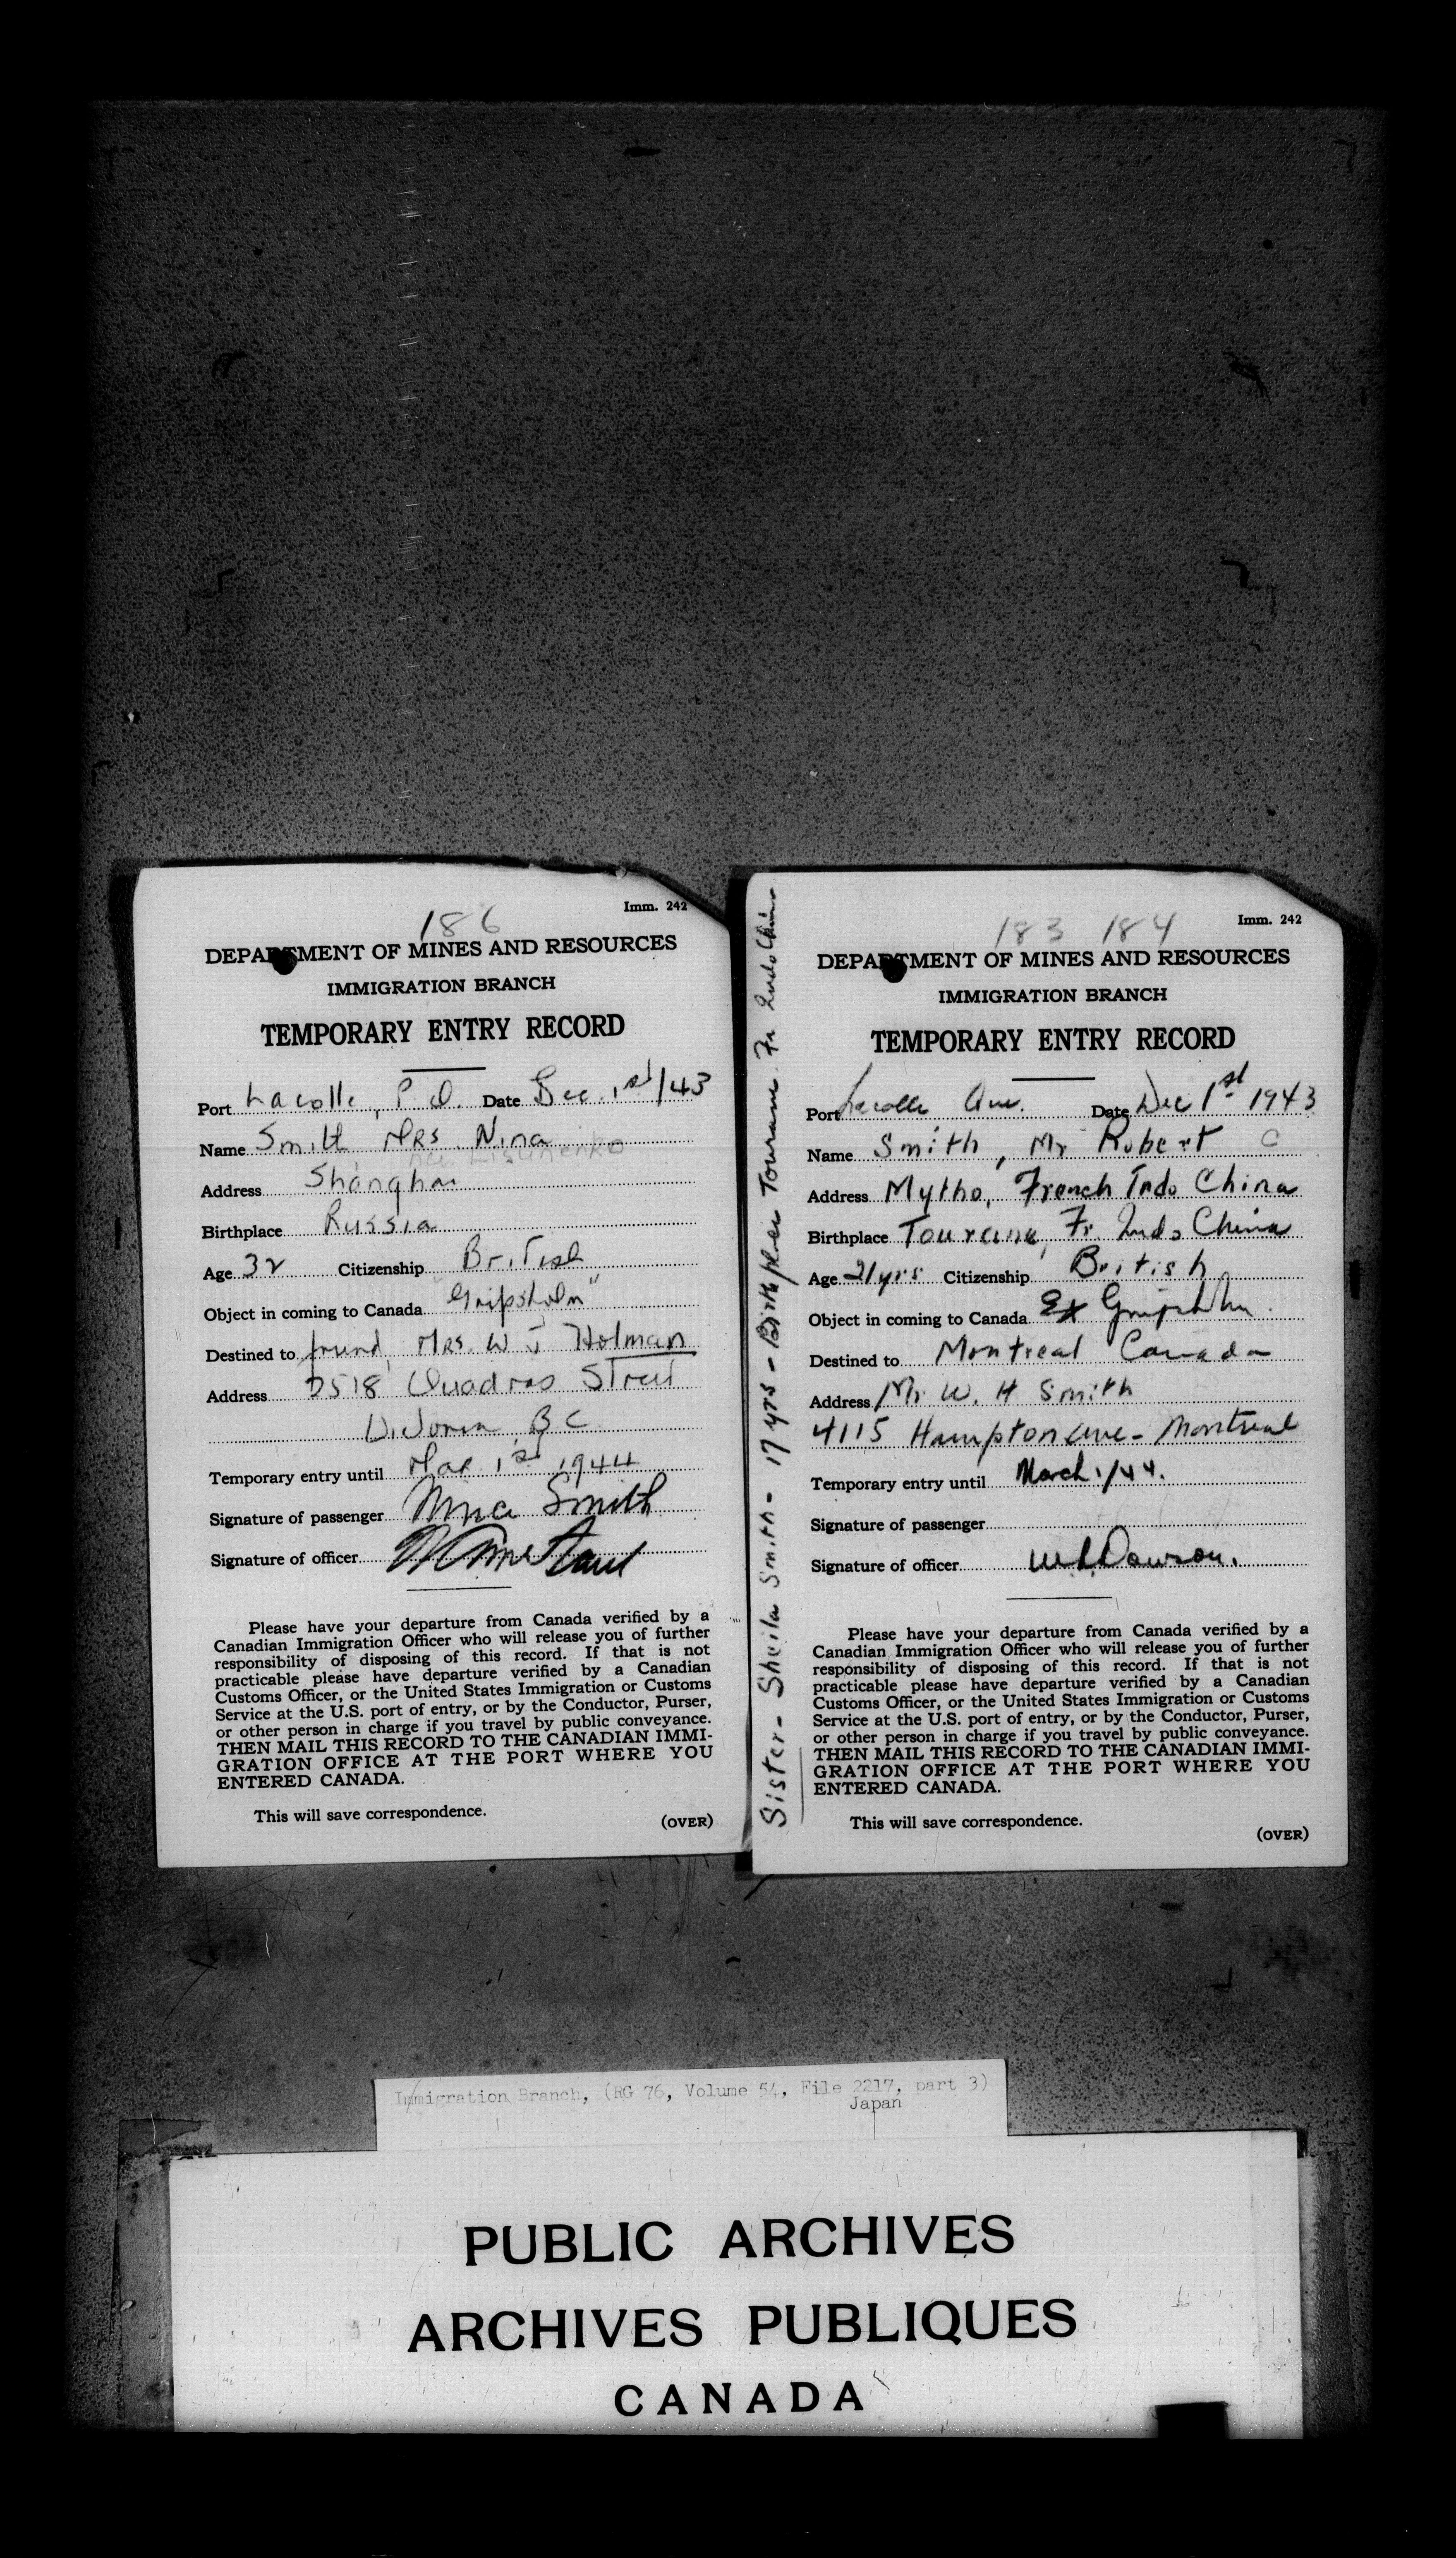 186
Imm. 242
DEPARTMENT OF MINES AND RESOURCES
IMMIGRATION BRANCH
TEMPORARY ENTRY RECORD
Port Lacolle, P.Q. Date Dec. 1st/43
Name Smith Mrs. Nina
Address Shanghai
Birthplace Russia
Age 32 Citizenship British
Object in coming to Canada "Gripsholm"
Destined to friend, Mrs. W J Holman
Address 2518 Quadras Street
Victoria B C
Temporary entry until Mar 1st 1944
Signature of passenger Nina Smith
Signature of officer
Please have your departure from Canada verified by a
Canadian Immigration Officer who will release you of further
responsibility of disposing of this record. If that is not
practicable please have departure verified by a Canadian
Customs Officer, or the United States Immigration or Customs
Service at the U.S. port of entry, or by the Conductor, Purser,
or other person in charge if you travel by public conveyance.
THEN MAIL THIS RECORD TO THE CANADIAN IMMI-
GRATION OFFICE AT THE PORT WHERE YOU
ENTERED CANADA.
This will save correspondence.
(OVER)
Sister - Sheila Smith - 17 yrs - Birthplace Tourane Fr Indo China
183 184
Imm. 242
DEPARTMENT OF MINES AND RESOURCES
IMMIGRATION BRANCH
TEMPORARY ENTRY RECORD
Port Lacolle Que. Date Dec 1st 1943
Name Smith, Mr Robert C
Address Mytho, French Indo China
Birthplace Tourane, Fr. Indo China
Age 21 yrs Citizenship British
Object in coming to Canada Ex Gripsholm.
Destined to Montreal Canada
Address Mr W. H Smith
4115 Hampton Ave - Montreal
Temporary entry until March 1/44.
Signature of passenger
Signature of officer Dawson.
Please have your departure from Canada verified by a
Canadian Immigration Officer who will release you of further
responsibility of disposing of this record. If that is not
practicable please have departure verified by a Canadian
Customs Officer, or the United States Immigration or Customs
Service at the U.S. port of entry, or by the Conductor, Purser,
or other person in charge if you travel by public conveyance.
THEN MAIL THIS RECORD TO THE CANADIAN IMMI-
GRATION OFFICE AT THE PORT WHERE YOU
ENTERED CANADA.
This will save correspondence.
(OVER)
Immigration Branch, (RG 76, Volume 54, File 2217, part 3)
Japan
PUBLIC ARCHIVES
ARCHIVES PUBLIQUES
CANADA